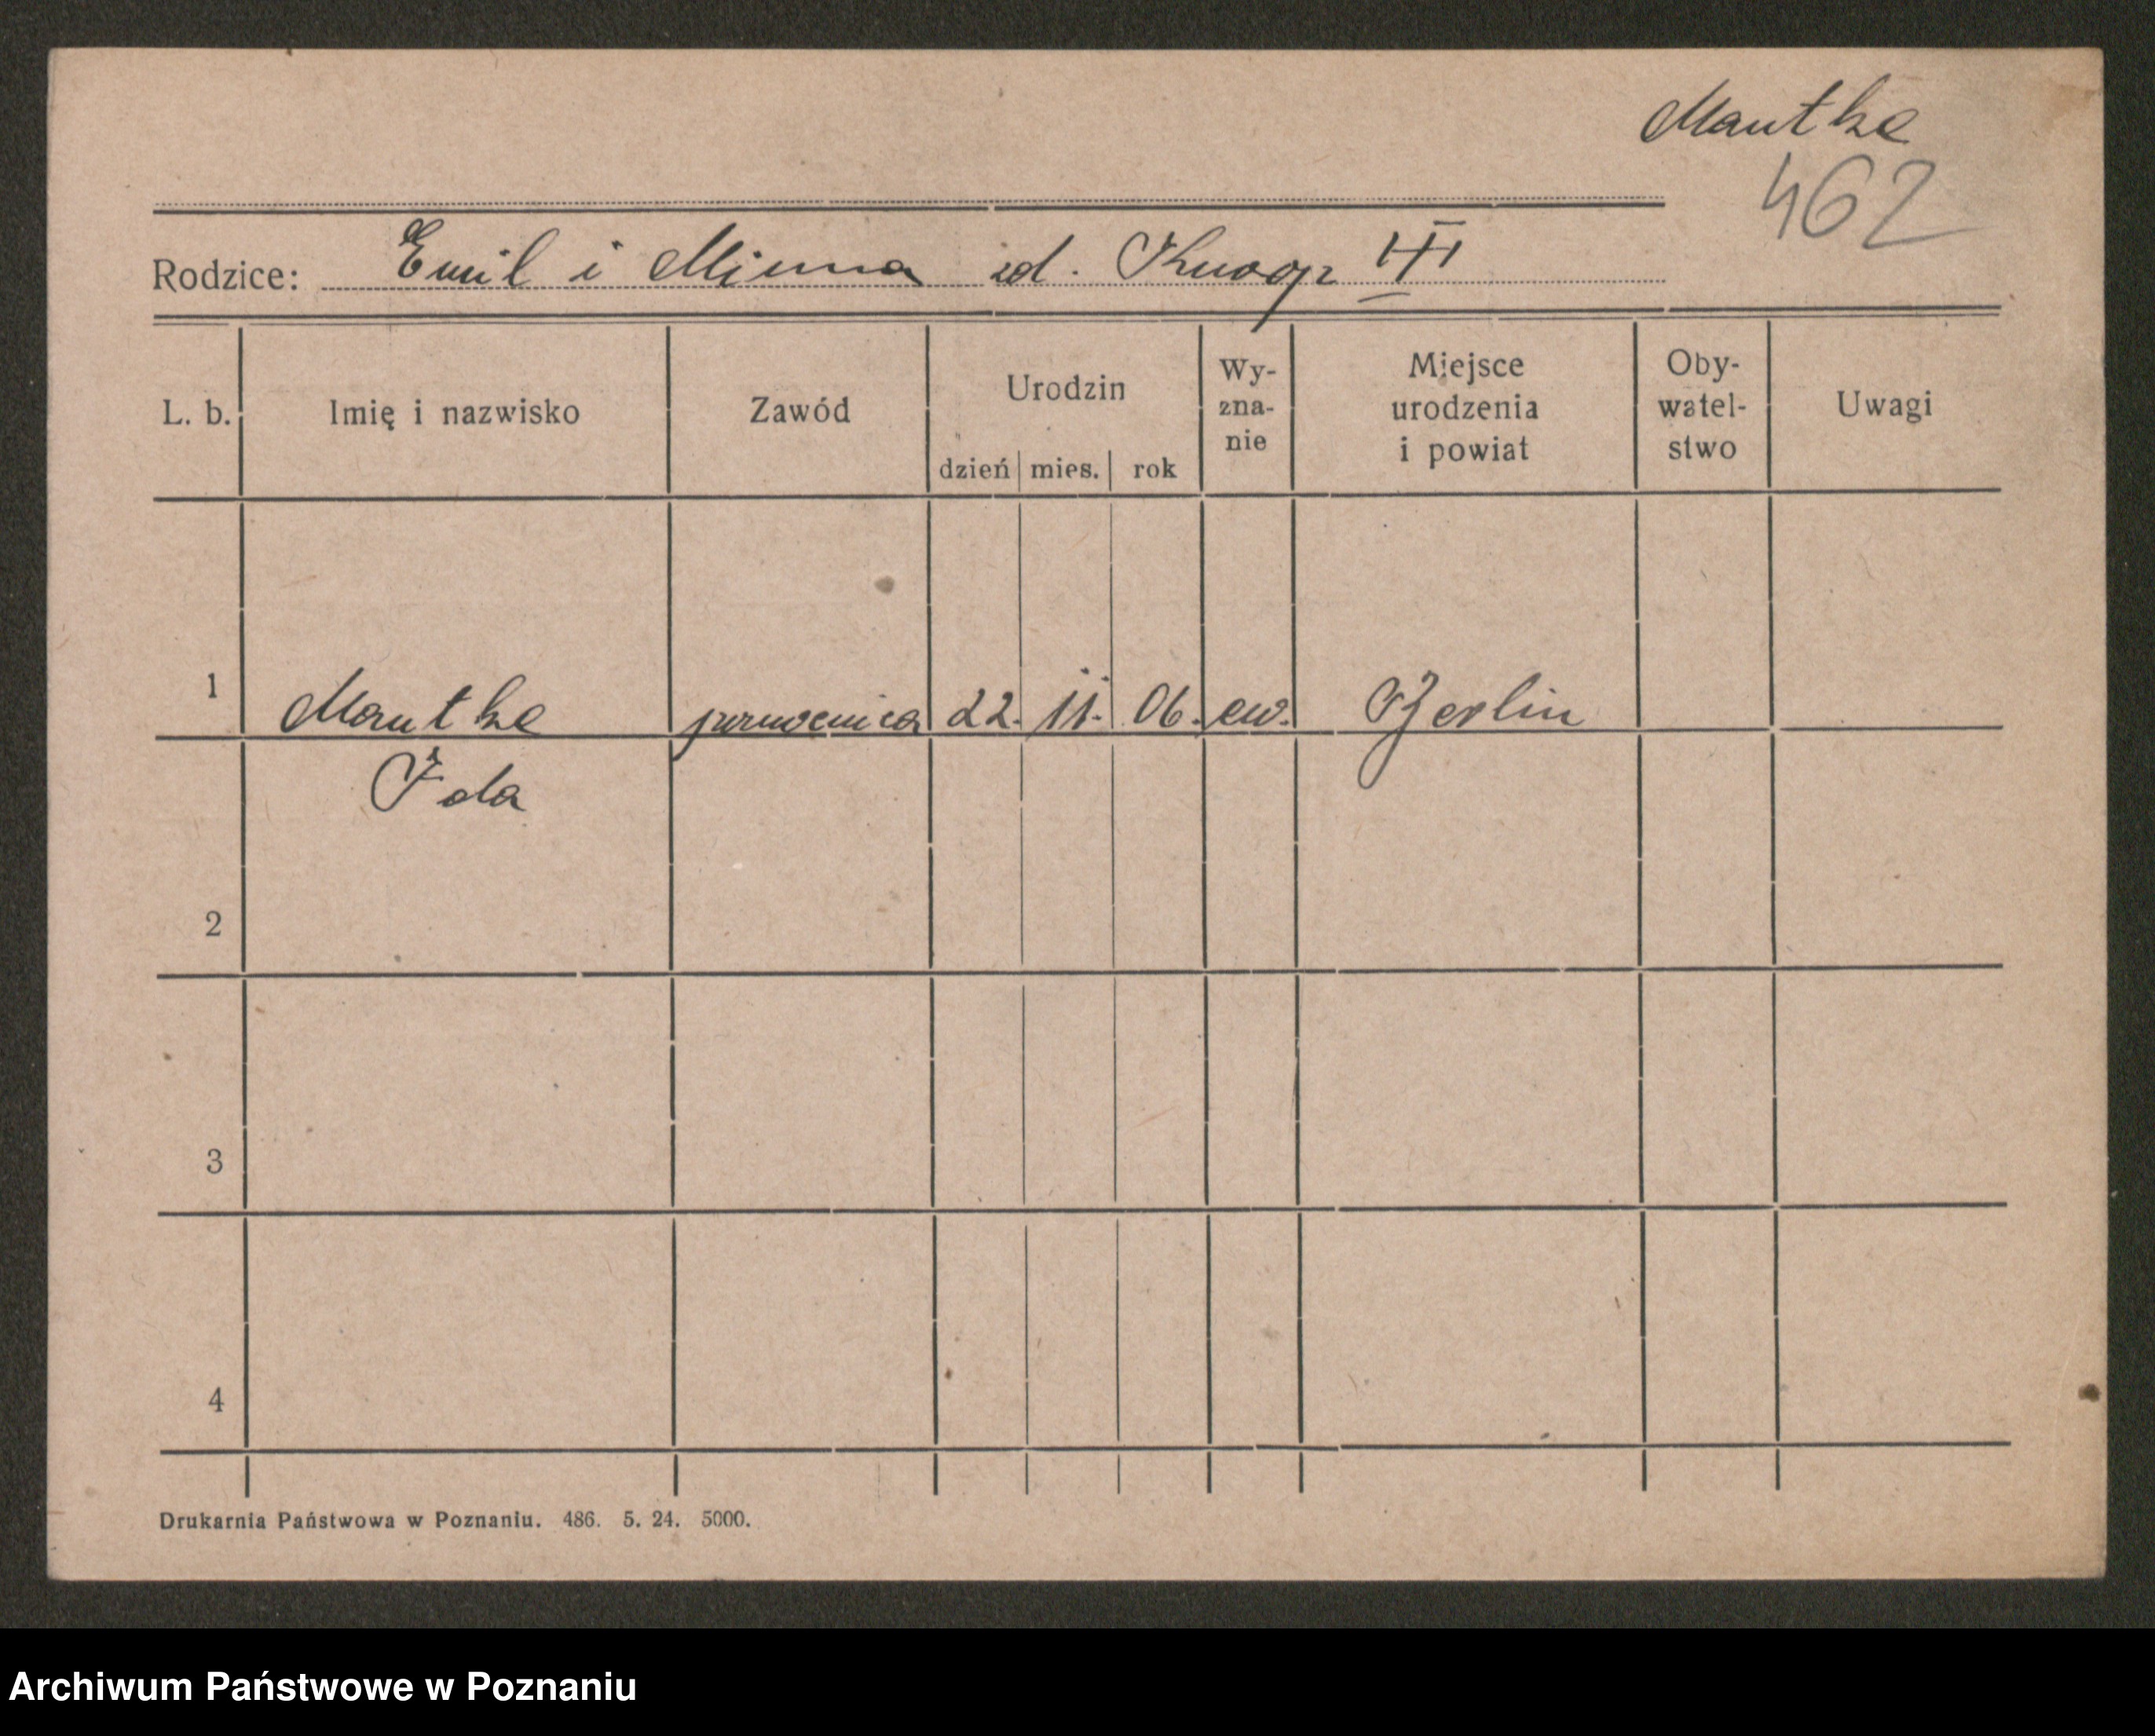 Mantke
462
Rodzice: Emil i Minna zd. Knoop III
L. b. Imię i nazwisko Zawód Urodzin dzień mies. rok Wy-zna-nie Miejsce urodzenia i powiat Oby-watel-stwo Uwagi
1 Mantke 22. 11. 06. ew. Berlin
Ida
2
3
4
Drukarnia Państwowa w Poznaniu. 486. 5. 24. 5000.
Archiwum Państwowe w Poznaniu